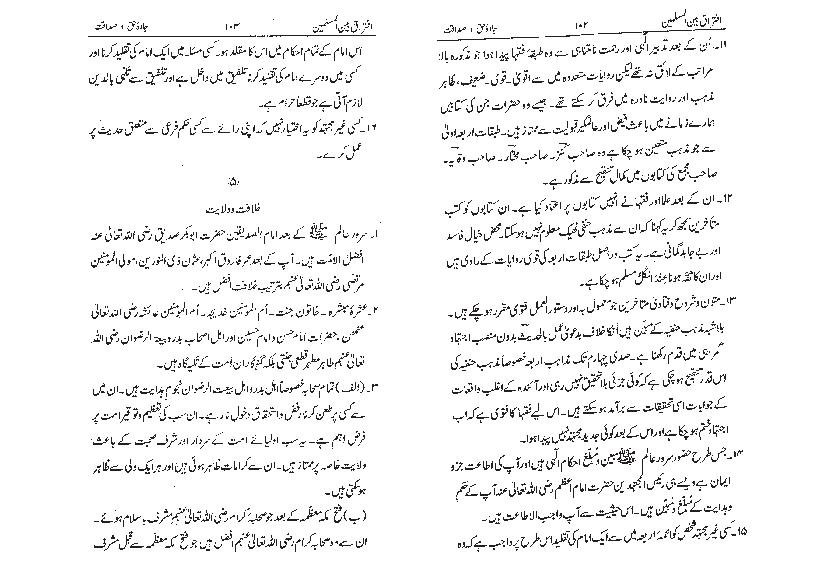 افتراق بین المسلمین ۱۰۲ جادۂ حق ، صداقت
۱۱۔ اُن کے بعد تدبیر الٰہی اور رحمت نامتناہی سے وہ طبقۂ فقہا پیدا ہوا جو مذکورہ بالا
مراتب کے لائق نہ تھے لیکن روایات متعددہ میں سے اقویٰ۔ قوی۔ ضعیف، ظاہر
مذہب اور روایت نادرہ میں فرق کر سکتے تھے۔ جیسے وہ حضرات جن کی کتابیں
ہمارے زمانے میں باعث فیض اور عالمگیر قبولیت سے ممتاز ہیں۔ طبقات اربعہ اولیٰ
سے جو مذہب متعین ہو چکا ہے وہ صاحب کنز۔ صاحب مختار۔ صاحب وقایہ۔
صاحب مجمع کی کتابوں میں کمال تنقیح سے مذکور ہے۔
۱۲۔ ان کے بعد علما اور فقہا نے انہیں کتابوں پر اعتماد کیا ہے۔ ان کتابوں کو کتب
متاخرین سمجھ کر یہ کہنا کہ ان سے مذہب حنفی ٹھیک معلوم نہیں ہو سکتا۔ محض خیال فاسد
اور بے جا بدگمانی ہے۔ یہ کتب دراصل طبقات اربعہ کی قوی روایات کے راوی ہیں
اور ان کا ثقہ ہونا عند الکل مسلم ہو چکا ہے۔
۱۳۔ متون و شروح و فتاویٰ متاخرین جو معمول بہ اور دستور العمل فتویٰ مقرر ہو چکے ہیں۔
بلاشبہ مذہب حنفیہ کے مبین ہیں۔ اُنکا خلاف بدعویٰ عمل بالحدیث بدون منصب اجتہاد
گمرہی میں قدم رکھنا ہے۔ صدی چہارم تک مذاہب اربعہ خصوصاً مذہب حنفیہ کی
اس قدر تنقیح ہو چکی ہے کہ کوئی جزئی بلا تحقیق نہیں رہی اور آئندہ کے اغلب واقعات
کے جوابات اسی تحقیقات سے برآمد ہو سکتے ہیں۔ اس لیے فقہا کا فتویٰ ہے کہ اب
اجتہاد ختم ہو چکا ہے اور اس کے بعد کوئی جدید مجتہد نہیں پیدا ہوا۔
۱۴۔ جس طرح حضور سرور عالم ﷺ مبین و مبلغ احکام الٰہی ہیں اور آپ کی اطاعت جزو
ایمان ہے ویسے ہی رئیس المجتہدین حضرت امام اعظم رضی اللہ تعالیٰ عنہ آپ کے حکم
و ہدایت کے مبلغ و مبین ہیں۔ اس حیثیت سے آپ واجب الاطاعت ہیں۔
۱۵۔ کسی غیر مجتہد شخص کو ائمۂ اربعہ میں سے ایک امام کی تقلید اس طرح پر واجب ہے کہ وہ
افتراق بین المسلمین ۱۰۳ جادۂ حق ، صداقت
اس امام کے تمام احکام میں اس کا مقلد ہو۔ کسی مسئلہ میں ایک امام کی تقلید کرنا اور
کسی میں دوسرے امام کی تقلید کرنا تلفیق میں داخل ہے اور تلفیق سے تلہی بالدین
لازم آتی ہے جو قطعاً حرام ہے۔
۱۶۔ کسی غیر مجتہد کو یہ اختیار نہیں کہ اپنی رائے سے کسی حکم فرعی سے متعلق حدیث پر
عمل کرے۔
،۵،
خلافت و ولایت
۱۔ سرور عالم ﷺ کے بعد امام الصدیقین حضرت ابوبکر صدیق رضی اللہ تعالیٰ عنہ
افضل الامت ہیں۔ آپ کے بعد عمر فاروق اکبر، عثمان ذی النورین، مولی المؤمنین
مرتضیٰ رضی اللہ تعالیٰ عنہم بترتیب خلافت افضل ہیں۔
۲۔ عشرۂ مبشرہ۔ خاتون جنت۔ اُم المؤمنین خدیجہ۔ اُم المؤمنین عائشہ رضی اللہ تعالیٰ
عنھن، حضرات امام حسن و امام حسین اور اہل اصحاب بدر و بیعۃ الرضوان رضی اللہ
تعالیٰ عنہم طاہر مطہر قطعی جنتی بلکہ گنہگاران اُمت کے تکیہ گاہ ہیں۔
۳۔ (الف) تمام صحابہ خصوصاً اہل بدر و اہل بیعت الرضوان نجوم ہدایت ہیں۔ ان میں
سے کسی پر طعن کرنا رفض و استحقاق دخول نار ہے۔ ان سب کی تعظیم و توقیر امت پر
فرض اہم ہے۔ یہ سب اولیائے امت کے سردار اور شرف صحبت کے باعث
ولایت خاصہ پر ممتاز ہیں۔ ان سے کرامات ظاہر ہوئی ہیں اور ہر ایک ولی سے ظاہر
ہو سکتی ہیں۔
(ب) فتح مکہ معظمہ کے بعد جو صحابہ کرام رضی اللہ تعالیٰ عنہم مشرف باسلام ہوئے۔
ان سے وہ صحابہ کرام رضی اللہ تعالیٰ عنہم افضل ہیں جو فتح مکہ معظمہ سے قبل مشرف